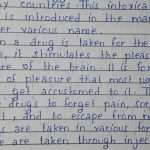 y countries. This intoxica
is introduced in the ma
er various name.
n a drug is taken for the
e, it stimulates the pleas
re of the brain. it is for
of pleasure that most
get accustomed to it. T
drugs to forget pain, sor
t, and to escape from re
s are taken in various for
e are taken through injec